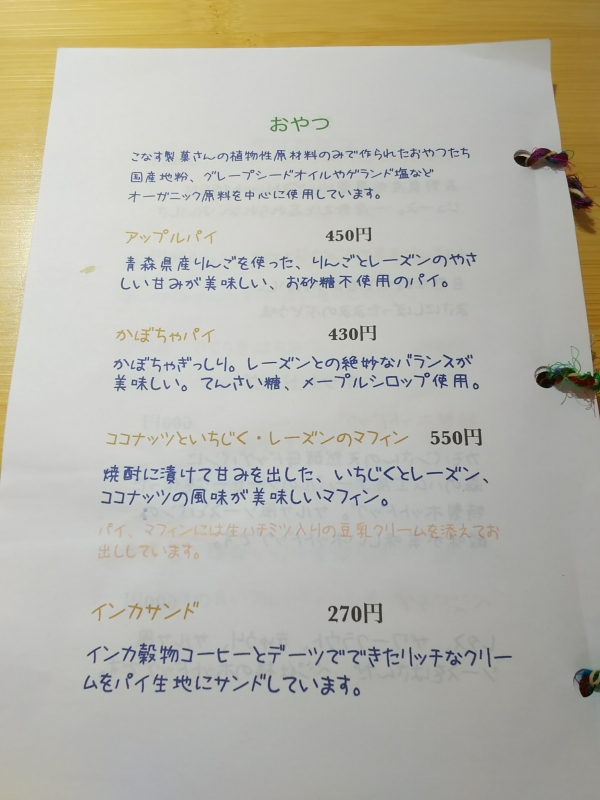 おやつ
こなす製菓さんの植物性原材料のみで作られたおやつたち
国産地粉、グレープシードオイルやゲランド塩など
オーガニック原料を中心に使用しています。
アップルパイ 450円
青森県産りんごを使った、りんごとレーズンのやさ
しい甘みが美味しい、お砂糖不使用のパイ。
かぼちゃパイ 430円
かぼちゃぎっしり。レーズンとの絶妙なバランスが
美味しい。てんさい糖、メープルシロップ使用。
ココナッツといちじく・レーズンのマフィン 550円
焼酎に漬けて甘みを出した、いちじくとレーズン、
ココナッツの風味が美味しいマフィン。
パイ、マフィンには生ハチミツ入りの豆乳クリームを添えてお
出ししています。
インカサンド 270円
インカ穀物コーヒーとデーツでできたリッチなクリー
ムをパイ生地にサンドしています。